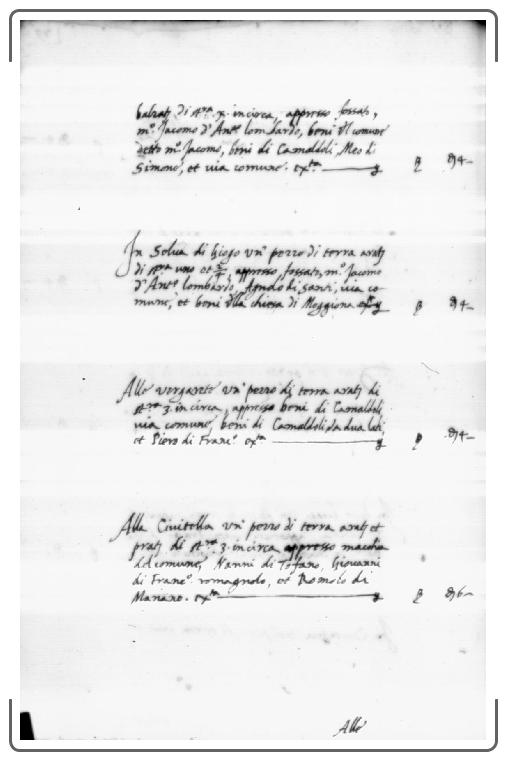 balzatj di st.ra x. incirca, appresso fossati,
m.o Jacomo d'Ant.o lombardo, beni del comune
detto m.o Jacomo, beni di Camaldoli, Meo di
Simone, et via comune. ext.ta
In Selva di un.o pezzo di terra aratj
di st.ra uno et, appresso, fossato, m.o Jacomo
d'Ant.o lombardo, Agnolo di Santi, via co-
mune, et beni della chiesa di Moggiona ex.ta
Alle vergarete un.o pezzo di terra aratj di
st.ra 3. incirca, appresso beni di Camaldoli,
via comune, beni di Camaldoli da dua lati,
et Piero di Franc.o ex.ta
Alla Civitella un.o pezzo di terra aratj et
pratj di st.ra 3. incirca appresso macchia
del comune, Nanni di Tofano, Giovanni
di Franc.o romagnolo, et Romolo di
Mariano. ext.ta
Alle